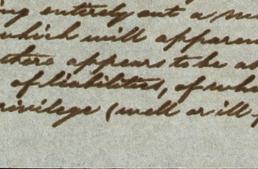 ng entirely out a m
which will apparen
there appears to be a
of liabilities, of wh
rivilege (well or ill